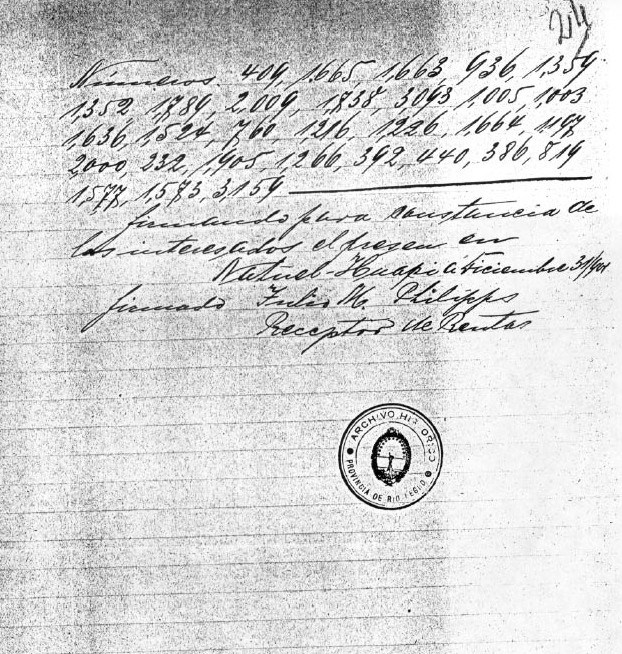 24
Números. 409, 1.665, 1,663, 936, 1,359
1,352, 1,789, 2,009, 1,738, 3093, 1,005, 1,003
1,636, 1,524, 760, 1,216, 1,226, 1,664, 1,197
2,000, 232, 1,905, 1,266, 392, 440, 386, 819
1,577, 1,573, 3,159
firmando para constancia de
los interesados el presen en
Nahuel-Huapi á Diciembre 31/901
firmado Julio M. Philipps
Receptor de Rentas
ARCHIVO HISTORICO
PROVINCIA DE RIO NEGRO